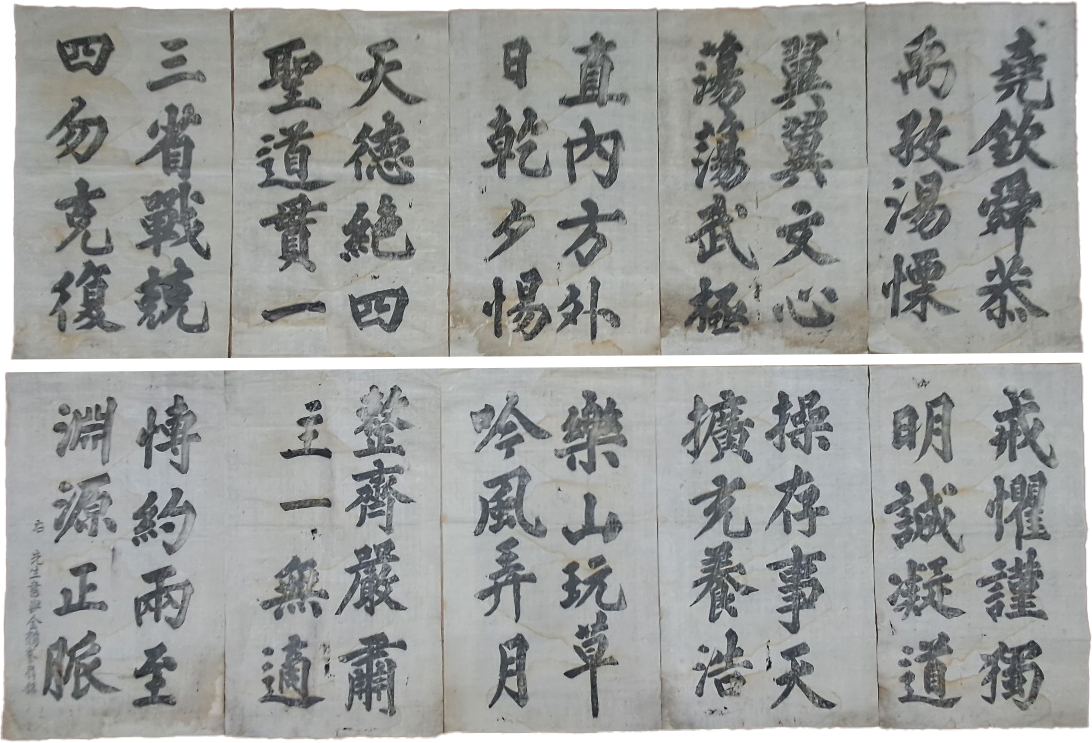 堯欽舜恭
禹孜湯慄
翼翼文心
蕩蕩武極
直內方外
日乾夕惕
天德絶四
聖道貫一
三省戰兢
四勿克復
戒懼謹獨
明誠凝道
操存事天
擴充養浩
樂山玩草
吟風弄月
整齊嚴肅
主一無適
愽約兩至
淵源正脈
右 先生書 金鶴峯屛銘